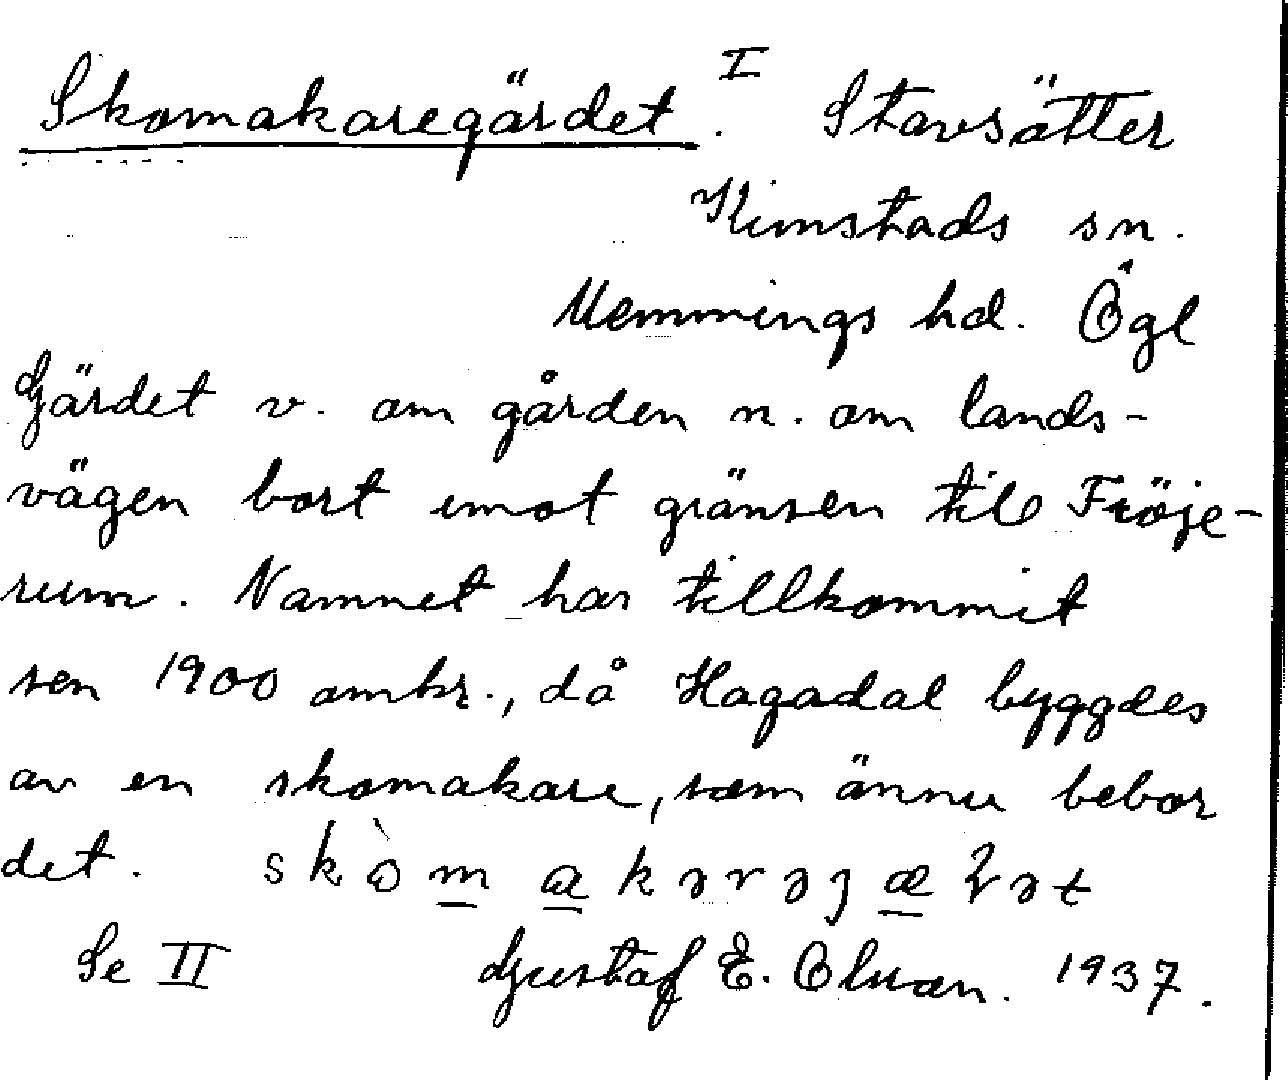 Skomakaregärdet. I Stavsätter
Kimstads sn.
Memmings hd. Ögl
Gärdet v. om gården n. om lands-
vägen bort emot gränsen till Fröje-
rum. Namnet har tillkommit
sen 1900 omkr., då Hagadal byggdes
av en skomakare, som ännu bebor
det.
Se II Gustaf E. 1937.